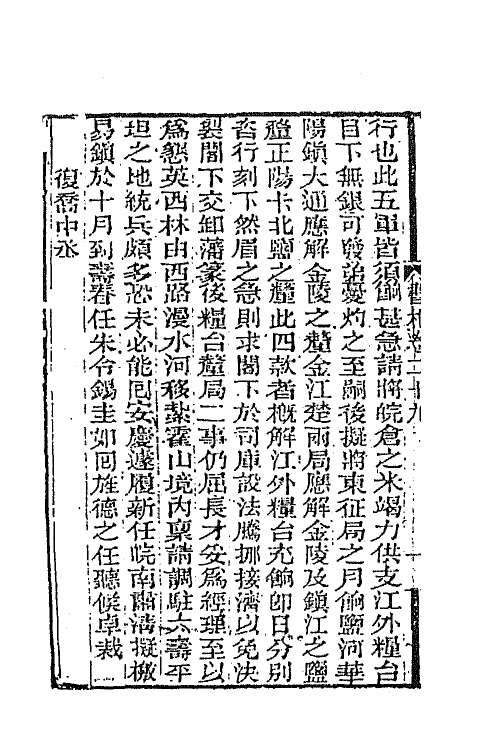 行也此五軍皆須餉甚急請將皖倉之米竭力供支江外糧台
目下無銀可發弟憂灼之至嗣後擬將東征局之月餉鹽河華
陽鎮大通應解金陵之釐金江楚兩局應解金陵及鎮江之鹽
釐正陽卡北鹽之釐此四款者概解江外糧台充餉卽日分別
咨行刻下然眉之急則求閣下於司庫設法騰挪接濟以免決
裂閣下交卸藩篆後糧台釐局二事仍屈長才妥爲經理至以
爲懇英西林由西路漫水河移紮霍山境內稟請調駐六壽平
坦之地統兵頗多恐未必能囘安慶遽履新任皖南肅清擬檄
易鎮於十月到壽春任朱令錫圭如囘旌德之任聽候卓裁
復喬中丞